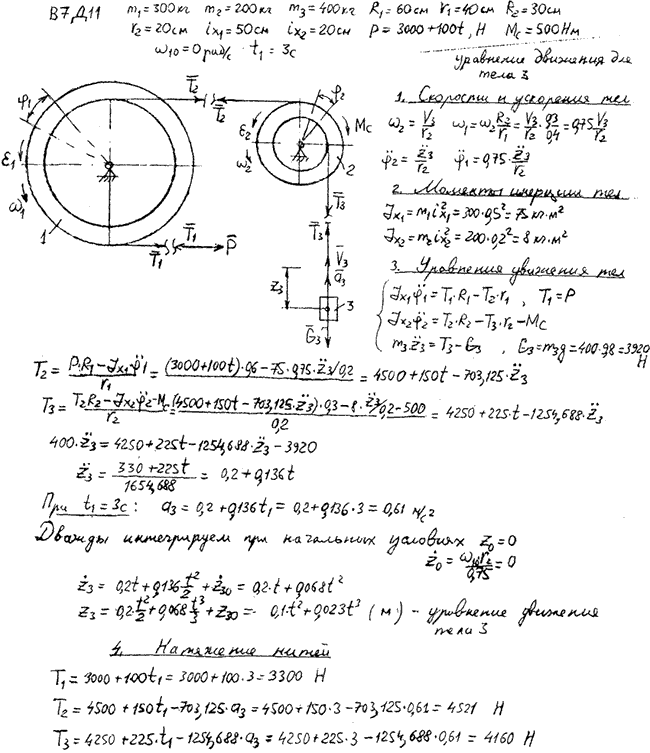 В7, Д11 m₁=300кг m₂=200кг m₃=400кг R₁=60см r₁=40см R₂=30см
r₂=20см iх₁=50см iх₂=20см P=3000+100t, Н Mc=500Нм
ω₁₀=0рад/с t₁=3с
уравнение движения для
тела 3
1. Скорости и ускорения тел
ω₂=V₃/r₂ ω₁=ω₂R₂/r₁=V₃/r₂·0,3/0,4=0,75V₃/r₂
φ̈₂=z̈₃/r₂ φ̈₁=0,75·z̈₃/r₂
2. Моменты инерции тел
Jх₁=m₁iх₁²=300·0,5²=75 кг·м²
Jх₂=m₂iх₂²=200·0,2²=8 кг·м²
3. Уравнения движения тел
Jх₁φ̈₁=T₁·R₁-T₂·r₁, T₁=P
Jх₂φ̈₂=T₂·R₂-T₃·r₂-Mc
m₃z̈₃=T₃-G₃, G₃=m₃g=400·9,8=3920 Н
φ₁ ε₁ ω₁ 1 T̄₂ T̄₂ T̄₁ T̄₁ P̄
φ₂ ε₂ ω₂ Mc 2 T̄₃ T̄₃ V̄₃ ā₃ z₃ 3 Ḡ₃
T₂=(P·R₁-Jх₁φ̈₁)/r₁=((3000+100t)·0,6-75·0,75·z̈₃/0,2)/ =4500+150t-703,125·z̈₃
T₃=(T₂R₂-Jх₂φ̈₂-Mc)/r₂=((4500+150t-703,125·z̈₃)·0,3-8·z̈₃/0,2-500)/0,2=4250+225·t-1254,688·z̈₃
400·z̈₃=4250+225t-1254,688·z̈₃-3920
z̈₃=(330+225t)/1654,688=0,2+0,136t
При t₁=3с: a₃=0,2+0,136t₁=0,2+0,136·3=0,61 м/с²
Дважды интегрируем при начальных условиях z₀=0
ż₀=ω₁₀r₂/0,75=0
ż₃=0,2t+0,136·t²/2+ż₃₀=0,2·t+0,068t²
z₃=0,2·t²/2+0,068t³/3+z₃₀=0,1t²+0,023t³ (м) - уравнение движения
тела 3
4. Натяжение нитей
T₁=3000+100t₁=3000+100·3=3300 Н
T₂=4500+150t₁-703,125·a₃=4500+150·3-703,125·0,61=4521 Н
T₃=4250+225·t₁-1254,688·a₃=4250+225·3-1254,688·0,61=4160 Н